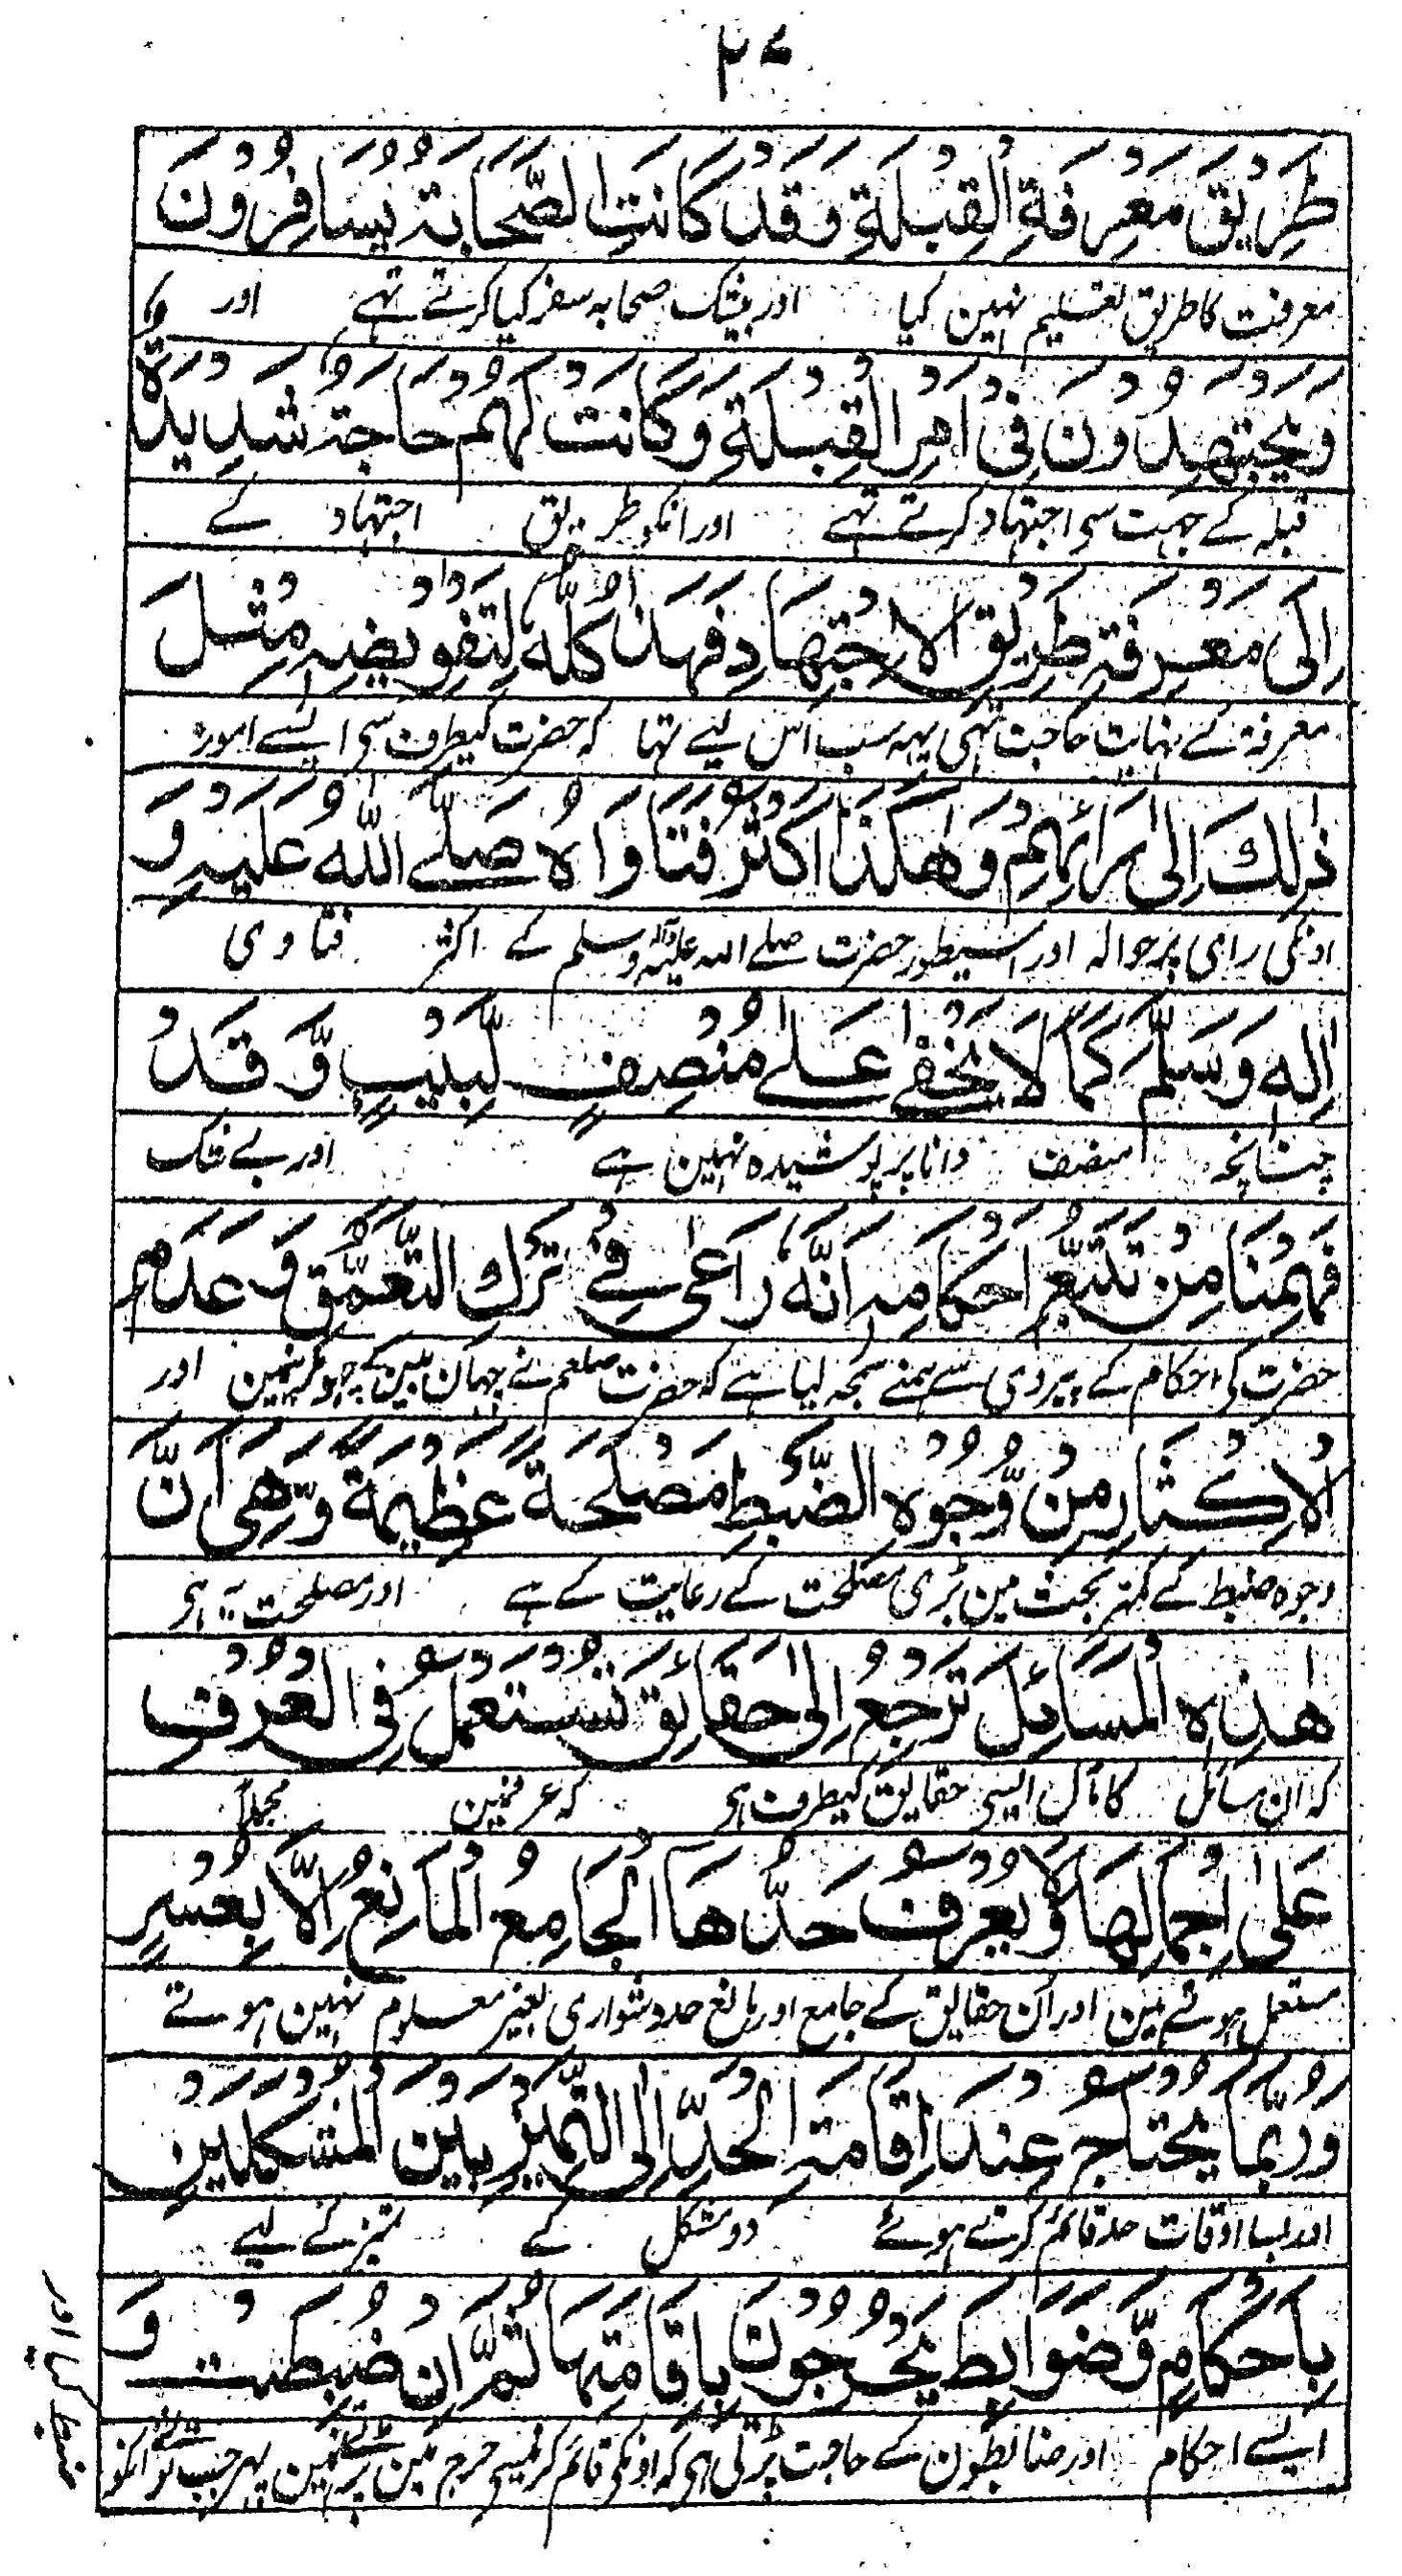 ۴۰
طَرِيْقَ مَعْرِفَةِ الْقِبْلَةِ وَقَدْ كَانَتِ الصَّحَابَةُ يُسَافِرُوْنَ
معرفت کا طریق تعلیم نہین کیا اور بیشک صحابہ سفر کیا کرتے تہے اور
وَيَجْتَهِدُوْنَ فِيْ اَمْرِ الْقِبْلَةِ وَكَانَتْ لَهُمْ حَاجَةٌ شَدِيْدَةٌ
قبلہ کے جہت سی اجتہاد کرتے تہے اور انکو طریق اجتہاد کے
اِلٰى مَعْرِفَةِ طَرِيْقِ الْاِجْتِهَادِ فَهٰذَا كُلُّهٗ لِتَفْوِيْضِهٖ مِثْلَ
معرفة کے نہایت حاجت تہی یہہ سب اس لیے تہا کہ حضرت کیطرف سی ایسے امور
ذٰلِكَ اِلٰى رَائِهِمْ وَهٰكَذَا اَكْثَرُ فَتَاوَاهُ صَلَّے اللّٰهُ عَلَيْهِ وَ
اونکی رای پر حوالہ اور اسیطور حضرت صلے اللہ علیہ وآلہ وسلم کے اکثر فتاوی
اٰلِهٖ وَسَلَّمَ كَمَا لَا يَخْفٰے عَلٰے مُنْصِفٍ لَّبِيْبٍ وَّقَدْ
چنانچہ منصف دانا پر پوشیدہ نہین ہے اور بے شک
فَهِمْنَا مِنْ تَتَبُّعِ اَحْكَامِهٖ اَنَّهٗ رَاعٰى فِيْ تَرْكِ التَّعَمُّقِ وَعَدَمِ
حضرت کی احکام کے پیروی سے ہمنے سمجہ لیا ہے کہ حضرت صلعم نے چہان بین کے چہوڑنیمین اور
الْاِكْثَارِ مِنْ وُّجُوْهِ الضَّبْطِ مَصْلَحَةً عَظِيْمَةً وَّهِيَ اَنَّ
وجوہ ضبط کے کمتر بحث مین بڑی مصلحت کے رعایت کے ہے اور مصلحت یہ ہی
هٰذِهِ الْمَسَائِلَ تَرْجِعُ اِلٰى حَقَائِقَ تُسْتَعْمَلُ فِي الْعُرْفِ
کہ ان مسائل کا مآل ایسی حقایق کیطرف ہی کہ عرفمین مجملاً
عَلٰى اِجْمَالِهَا وَلَا يُعْرَفُ حَدُّهَا الْجَامِعُ الْمَانِعُ اِلَّا بِعُسْرٍ
مستعمل ہوتے ہین اور ان حقایق کے جامع اور مانع حد دشواری بغیر معلوم نہین ہوتے
وَرُبَّمَا يُحْتَاجُ عِنْدَ اِقَامَةِ الْحَدِّ اِلَى التَّمْيِيْزِ بَيْنَ الْمُشْكِلَيْنِ
اور بسا اوقات حد قائم کرتے ہوئے دو مشکل کے تمیز کے لیے
بِاَحْكَامٍ وَّضَوَابِطَ يُحْرَجُوْنَ بِاِقَامَتِهَا ثُمَّ اِنْ ضُبِطَتْ وَ
ایسے احکام اور ضابطون کے حاجت پڑتی ہی کہ اونکی قائم کرنیسی حرج مین پڑتے ہین پہر جب تو انکو
ضبط کیا اور